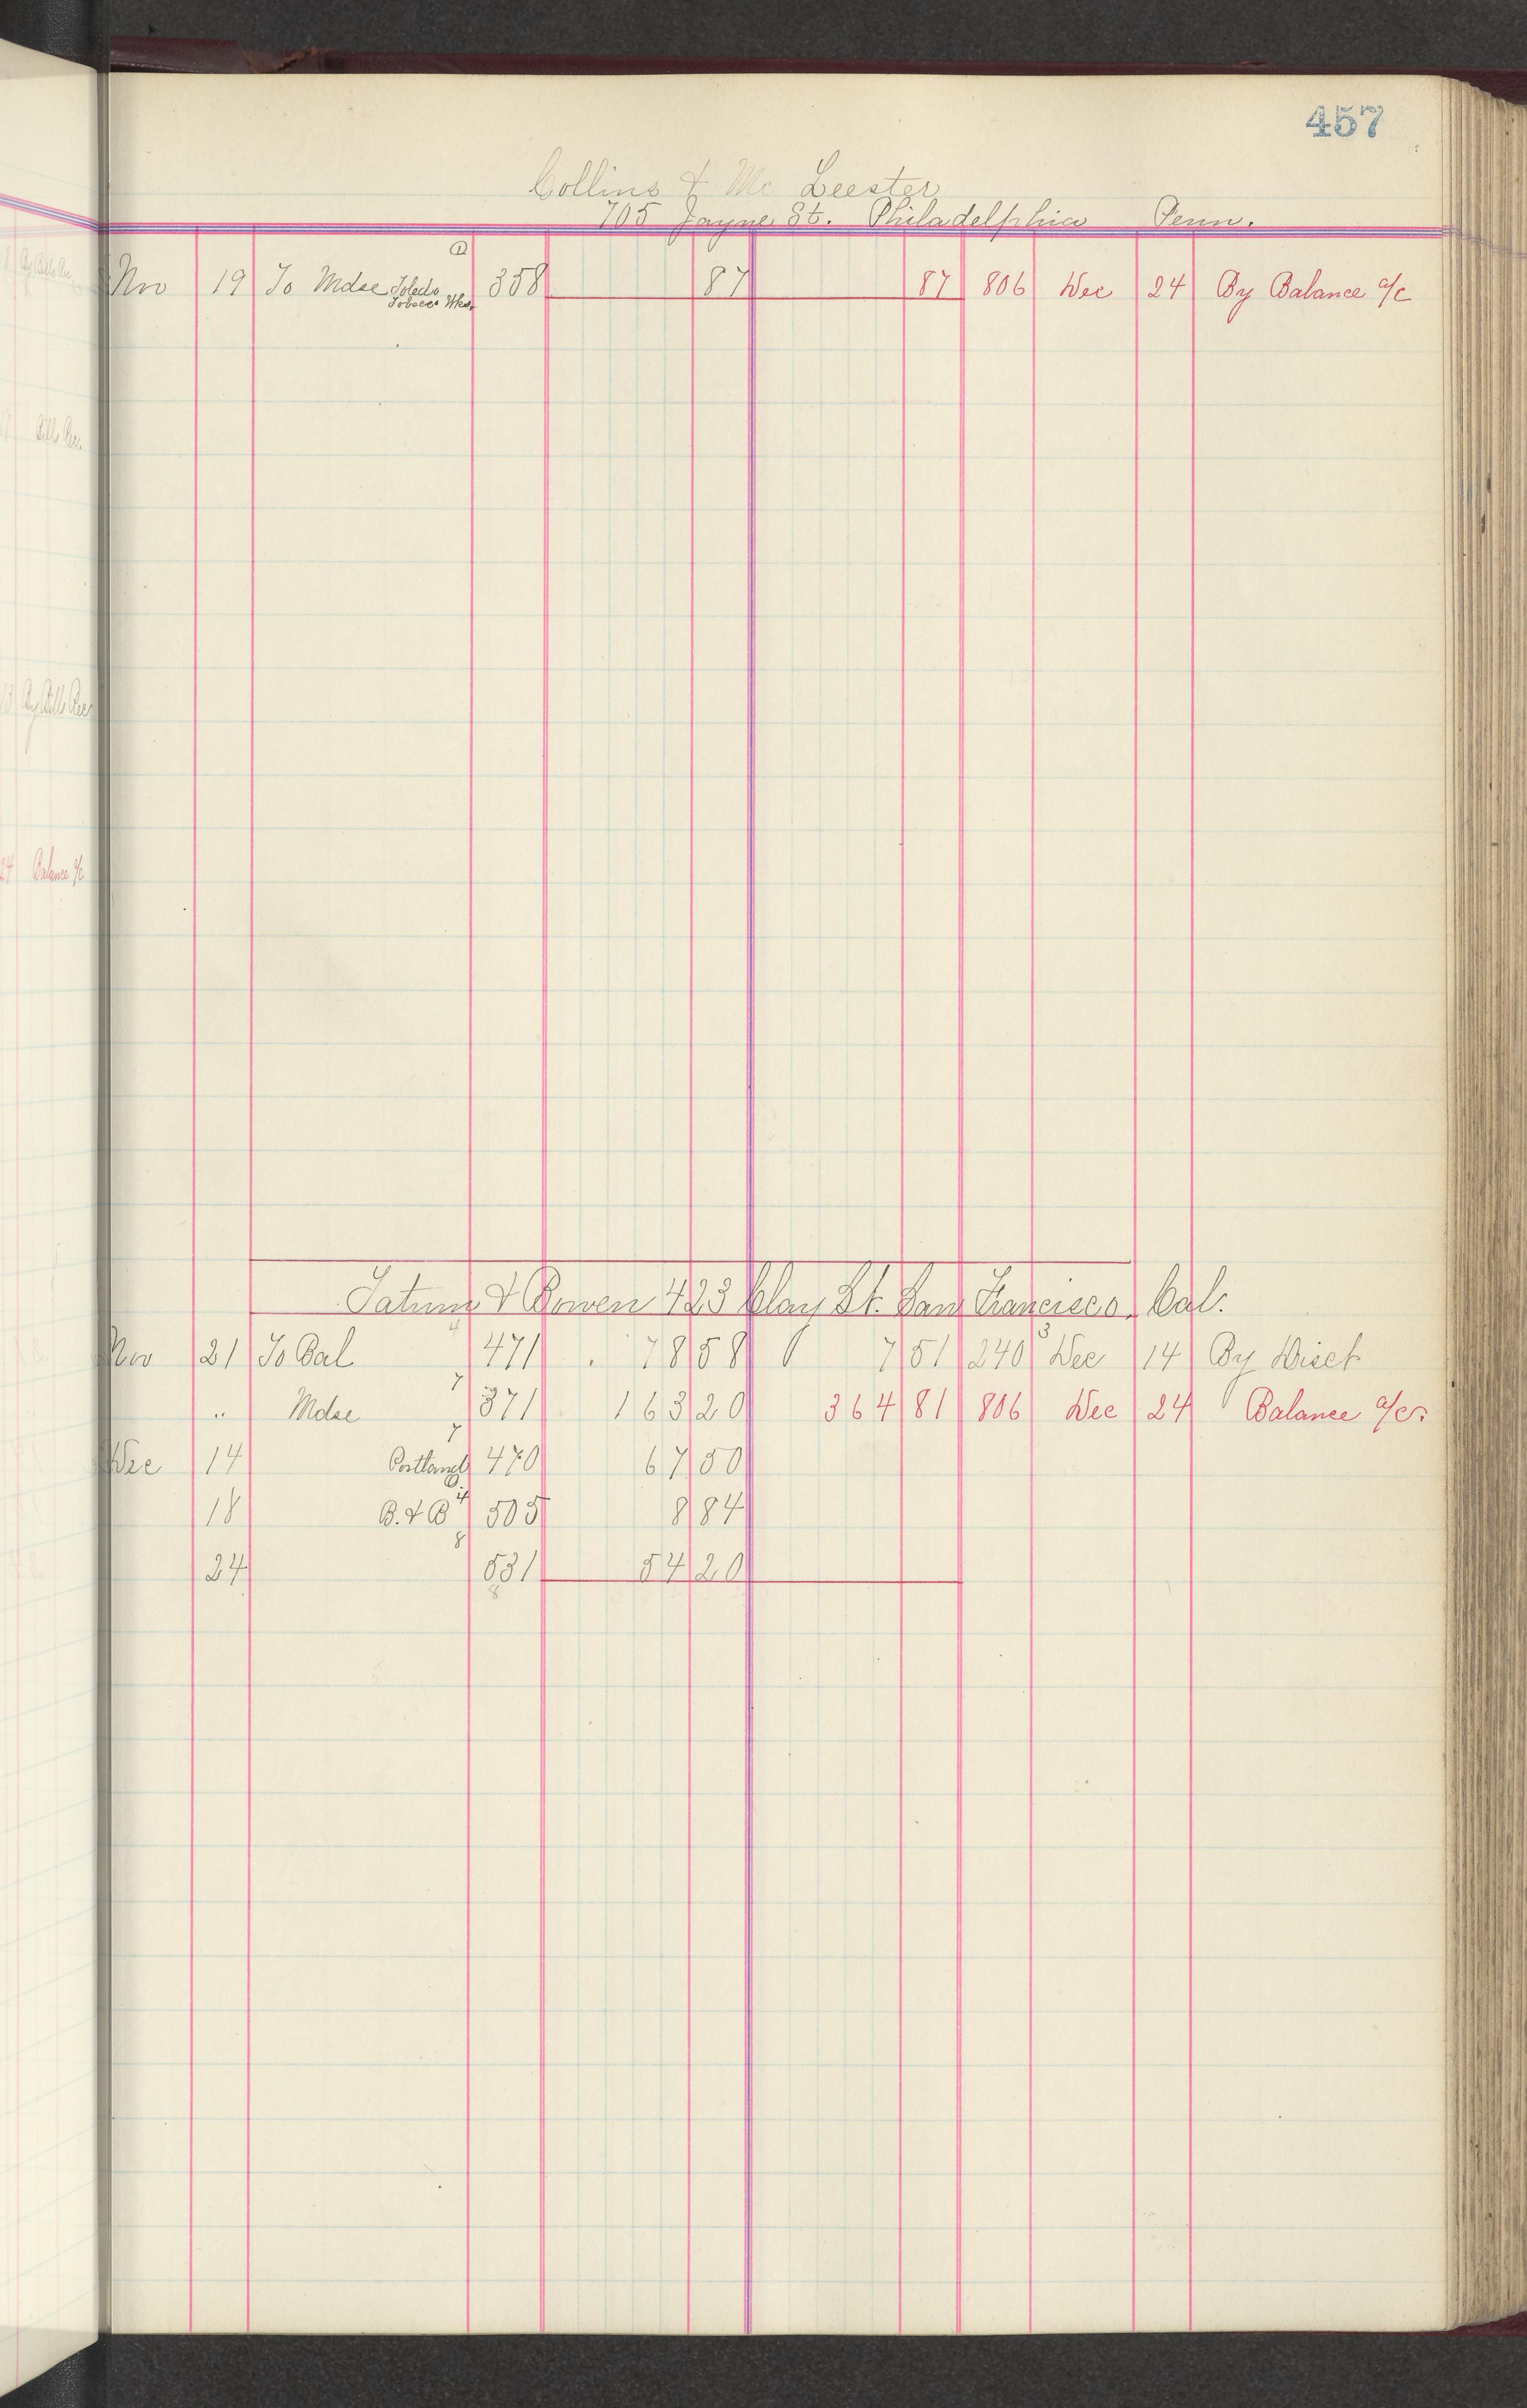 457
Collins & Mc Leester
705 Jayne St. Philadelphia Penn.
Nov 19 To Mdse Toledo Tobacco Wks. 358 87 87 806 Dec 24 By Balance a/c
Tatum & Bowen 423 Clay St. San Francisco Cal.
Nov 21 To Bal 471 78 58 7 51 240 Dec 14 By Disct
" Mdse 371 163 20 364 81 806 Dec 24 Balance a/c
Dec 14 Portland 470 67 50
18 B. & B 505 8 84
24 531 54 20
By Bills Rec
Bills Rec.
By Bills Rec
24 Balance a/c